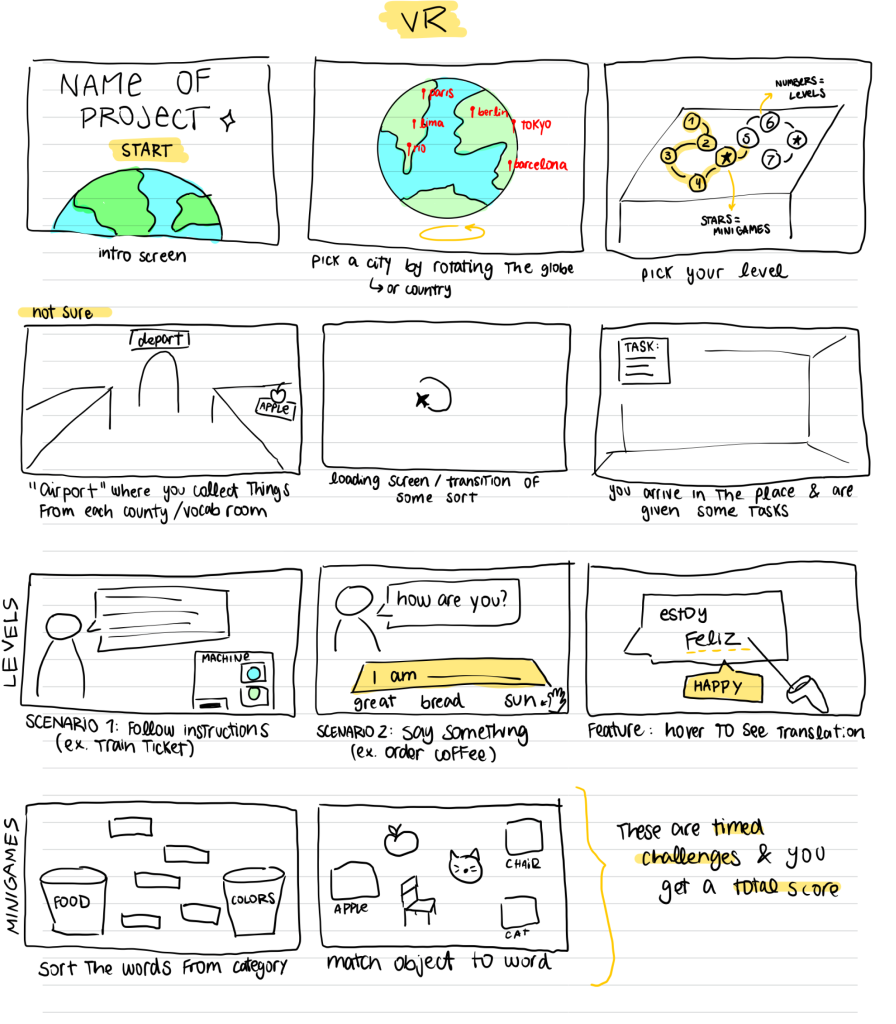 VR
NAME OF
PROJECT
START
intro screen
paris
lima
rio
berlin
TOKYO
barcelona
PICK A CITY by ROTATING THE GLOBE
↳ or country
NUMBERS =
LEVELS
1
2
3
4
5
6
7
STARS =
MINIGAMES
PICK YOUR LEVEL
not sure
depart
APPLE
"airport" where you collect Things
from each county / vocab room
loading screen / transition of
some sort
TASK:
you arrive in the place & are
given some tasks
LEVELS
MACHINE
SCENARIO 1: Follow instructions
(ex. Train Ticket)
how are you?
I am
great bread sun
SCENARIO 2: Say something
(ex. order coffee)
estoy
Feliz
HAPPY
Feature: hover TO see Translation
MINIGAMES
FOOD
COLORS
Sort The words from category
APPLE
CHAIR
CAT
match object to word
These are timed
challenges & you
get a total score